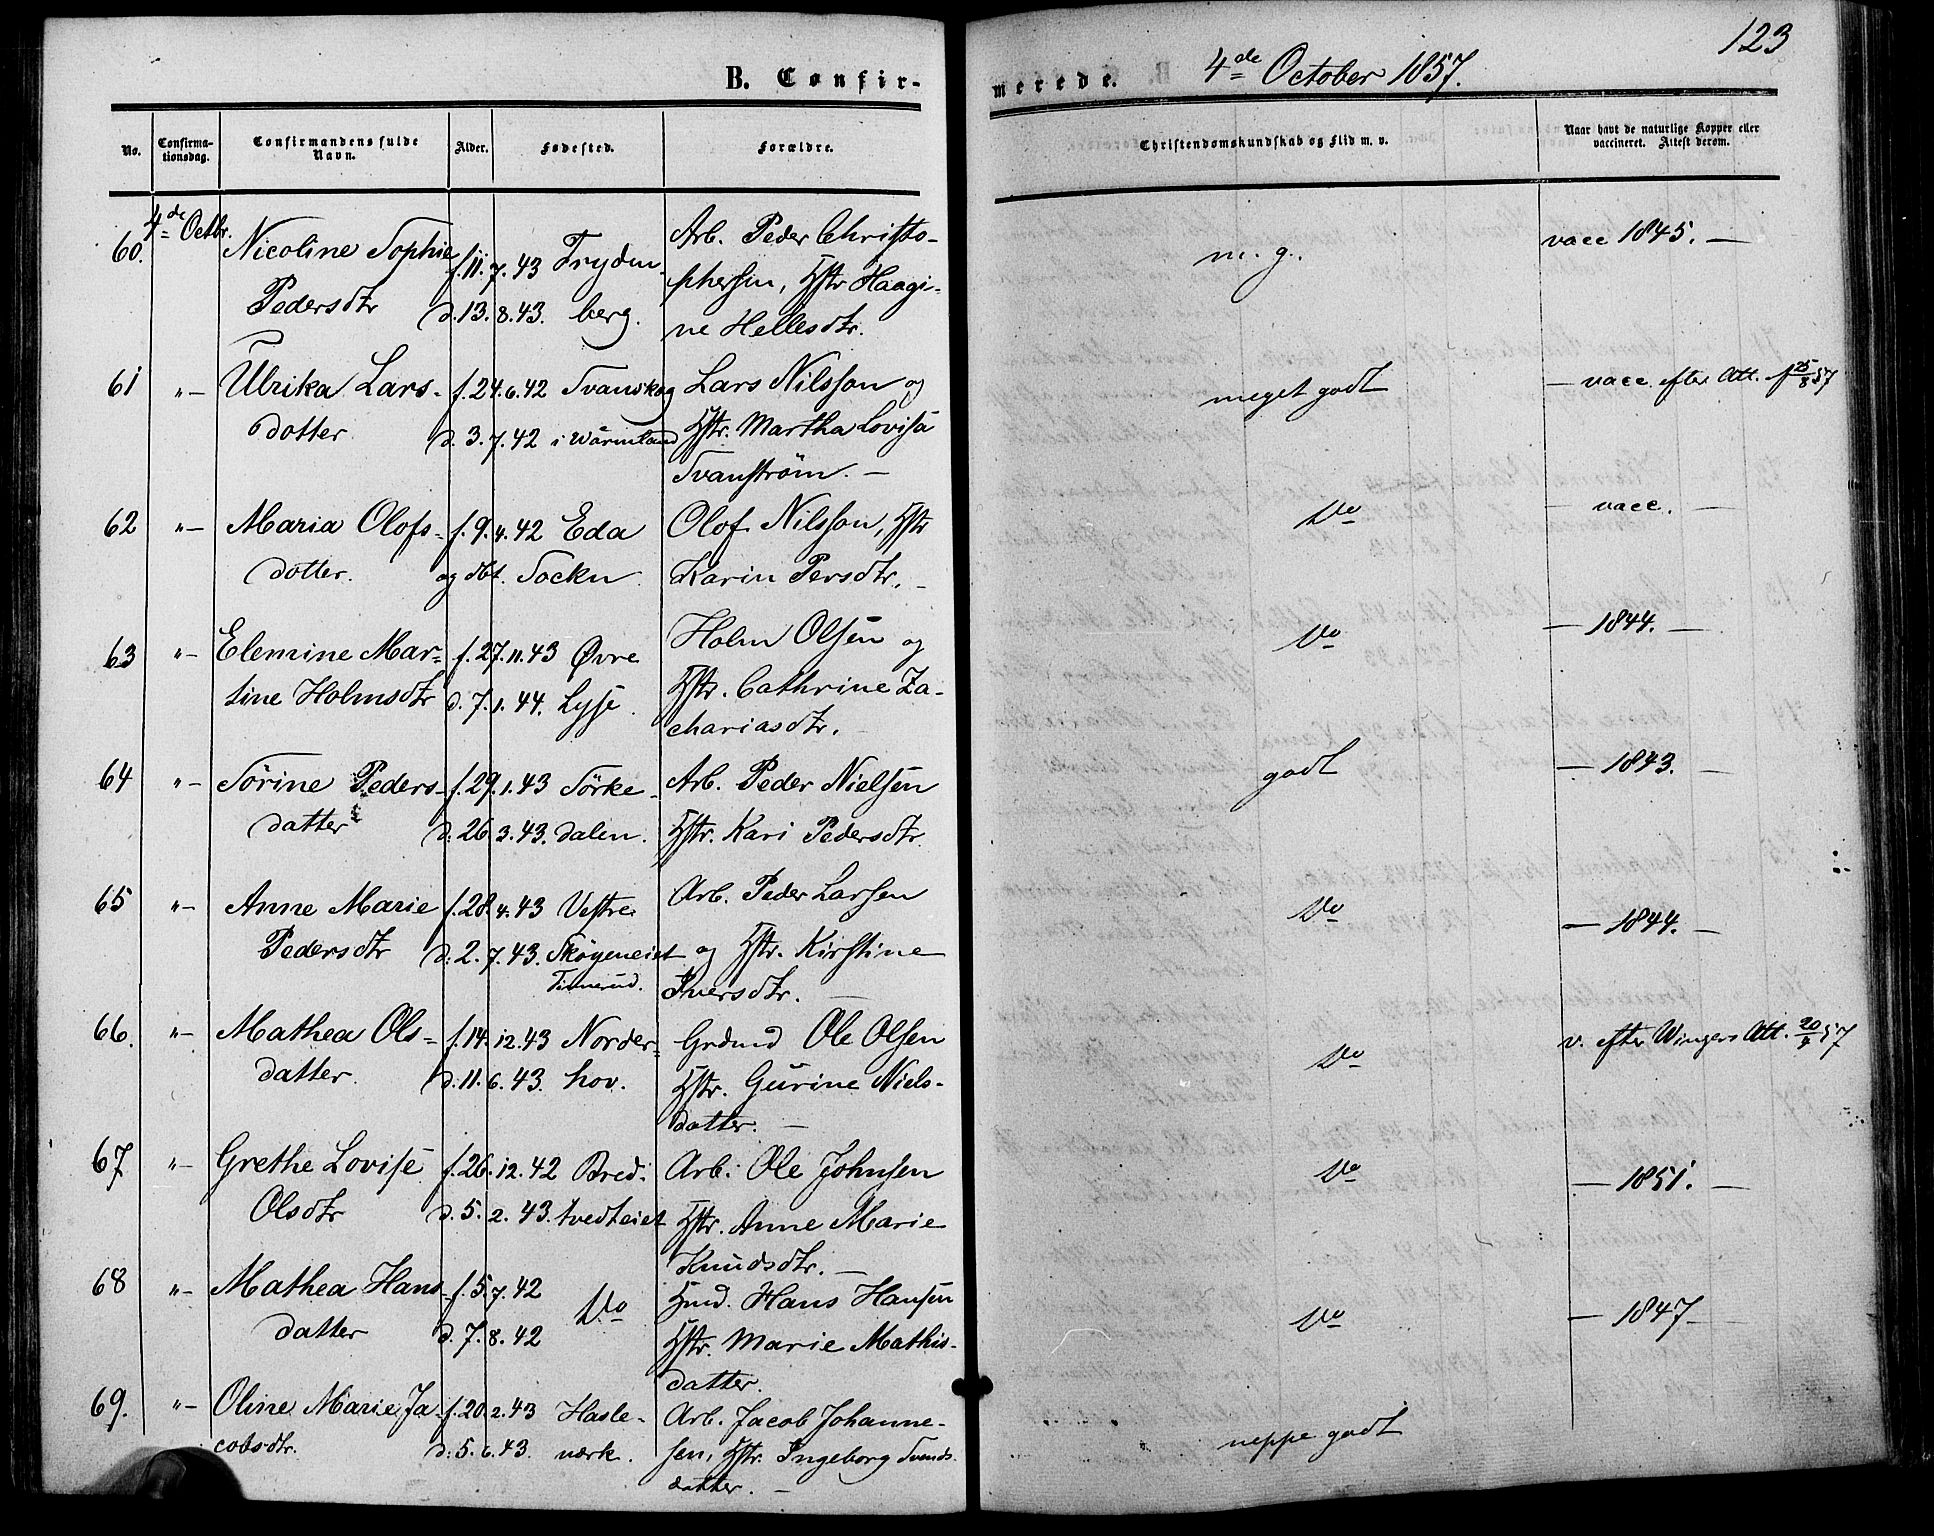 123
B. Confir-
merede. 4de October 1857.
No.
Confirma-
tionsdag.
Confirmandens fulde
Navn.
Alder.
Fødested.
Forældre.
Christendomskundskab og Flid m. v.
Naar havt de naturlige Kopper eller
vaccineret. Attest derom.
60. 4de Octbr. Nicoline Sophie f. 11. 7. 43 Fryden- Arb. Peder Christo- m. g. vacc 1845. —
Pedersdtr d. 13. 8. 43. berg. phersen, Hstr Haagi-
ne Hellesdtr.
61 "- Ulrika Lars- f. 24. 6. 42 Svanskog Lars Nilsson og meget godt — vacc. efter Att. f 25/8 57
dotter. d. 3. 7. 42 i Wärmland Hstr. Martha Lovisa
Svanström. —
62 "- Maria Olofs- f. 9. 4. 42 Eda Olof Nilsson, Hstr Do — vacc. —
dotter. og dbt. Sockn. Karin Persdtr. —
63 "- Elemine Mar- f. 27. 11. 43 Øvre Holm Olsen og Do — 1844. —
tine Holmsdtr d. 7. 1. 44. Lysje. Hstr. Cathrine Za-
chariasdtr.
64 "- Sörine Peders- f. 29. 1. 43 Sörke- Arb. Peder Nielsen godt — 1843. —
datter d. 26. 3. 43. dalen. Hstr. Kari Pedersdtr.
65 "- Anne Marie f. 28. 4. 43 Vestre Arb. Peder Larsen Do — 1844. —
Pedersdtr d. 2. 7. 43. Skøyeneiet og Hstr. Kirstine
Iversdtr. —
66. "- Mathea Ols- f. 14. 12. 43 Norder- Grdmd Ole Olsen Do v. efter Wingers Att. 57
datter. d. 11. 6. 43. hov. Hstr. Gurine Niels-
datter. —
67 "- Grethe Lovise f. 26. 12. 42 Bred- Arb. Ole Johnsen Do — 1851. —
Olsdtr d. 5. 2. 43. tvedteiet Hstr. Anne Marie
Knudsdtr. —
68 "- Mathea Hans- f. 5. 7. 42 Do Hmd. Hans Hansen Do — 1847 —
datter d. 7. 8. 42 Hstr. Marie Mathis-
datter.
69. "- Oline Marie Ja- f. 20. 2. 43 Hasle- Arb. Jacob Johanne- neppe godt
cobsdtr. d. 5. 6. 43. værk. sen, Hstr. Ingeborg Svends-
datter. —